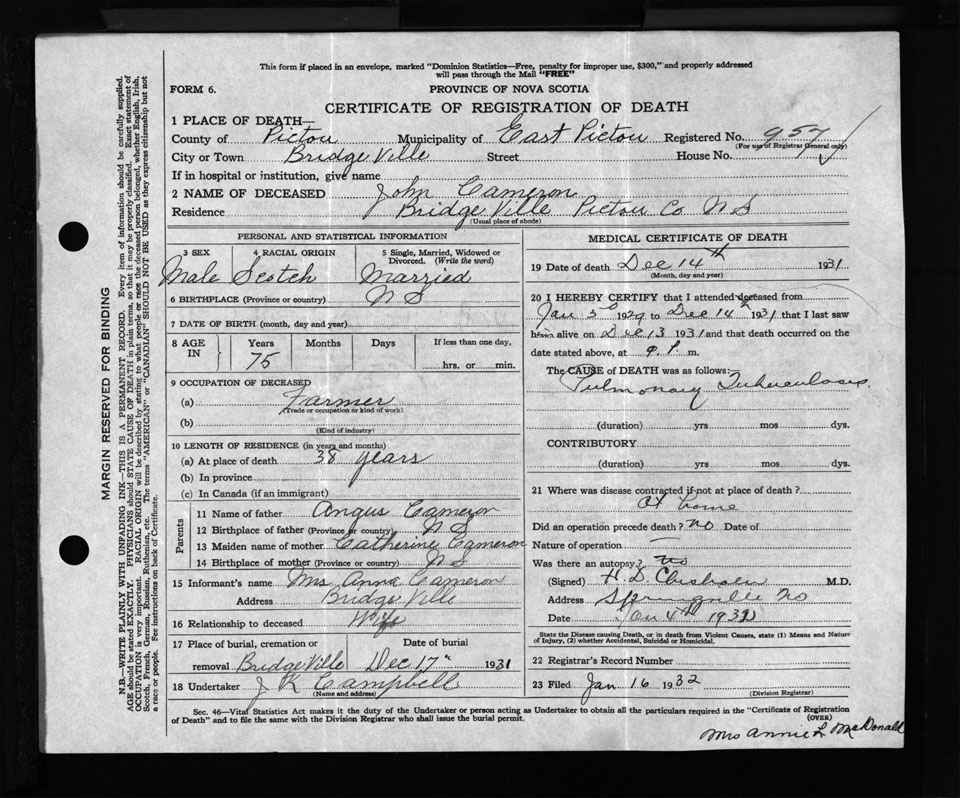 This form if placed in an envelope, marked "Dominion Statistics—Free, penalty for improper use, $300," and properly addressed
will pass through the Mail "FREE"
FORM 6.
PROVINCE OF NOVA SCOTIA
CERTIFICATE OF REGISTRATION OF DEATH
1 PLACE OF DEATH—
County of Pictou Municipality of East Pictou Registered No. 957
(For use of Registrar General only)
City or Town Bridge Ville Street House No.
If in hospital or institution, give name
2 NAME OF DECEASED John Cameron
Residence Bridge Ville Pictou Co N S
(Usual place of abode)
PERSONAL AND STATISTICAL INFORMATION
3 SEX 4 RACIAL ORIGIN 5 Single, Married, Widowed or Divorced. (Write the word)
Male Scotch Married
6 BIRTHPLACE (Province or country) N S
7 DATE OF BIRTH (month, day and year)
8 AGE IN Years Months Days If less than one day,
75 hrs. or min.
9 OCCUPATION OF DECEASED
(a) Farmer
(Trade or occupation or kind of work)
(b)
(Kind of industry)
10 LENGTH OF RESIDENCE (in years and months)
(a) At place of death 38 years
(b) In province
(c) In Canada (if an immigrant)
Parents
11 Name of father Angus Cameron
12 Birthplace of father (Province or country) N S
13 Maiden name of mother Catherine Cameron
14 Birthplace of mother (Province or country) N S
15 Informant's name Mrs Anna Cameron
Address Bridge Ville
16 Relationship to deceased Wife
17 Place of burial, cremation or Date of burial
removal Bridge Ville Dec 17" 1931
18 Undertaker J K Campbell
(Name and address)
MEDICAL CERTIFICATE OF DEATH
19 Date of death Dec 14th 1931
(Month, day and year)
20 I HEREBY CERTIFY that I attended deceased from
Jan 1929 to Dec 14th 1931 that I last saw
him alive on Dec 13 1931 and that death occurred on
date stated above, at P. m.
The CAUSE of DEATH was as follows:
Pulmonary Tuberculosis
(duration) yrs mos dys.
CONTRIBUTORY
(duration) yrs mos dys.
21 Where was disease contracted if not at place of death?
At home
Did an operation precede death? no Date of
Nature of operation —
Was there an autopsy? No
(Signed) H. D. Chisholm M.D.
Address Springville NS
Date Jan 4th 1932
State the Disease causing Death, or in death from Violent Causes, state (1) Means and Nature
of Injury, (2) whether Accidental, Suicidal or Homicidal.
22 Registrar's Record Number
23 Filed Jan 16 1932
(Division Registrar)
Sec. 46—Vital Statistics Act makes it the duty of the Undertaker or person acting as Undertaker to obtain all the particulars required in the "Certificate of Registration
of Death" and to file the same with the Division Registrar who shall issue the burial permit.
(OVER)
Mrs Annie L McDonald
MARGIN RESERVED FOR BINDING
N.B.—WRITE PLAINLY WITH UNFADING INK—THIS IS A PERMANENT RECORD. Every item of information should be carefully supplied.
AGE should be stated EXACTLY. PHYSICIANS should STATE CAUSE OF DEATH in plain terms, so that it may be properly classified. Exact statement of
OCCUPATION is very important. RACIAL ORIGIN will be described by stating to what people or race the deceased person belonged, whether English, Irish,
Scotch, French, German, Russian, Ruthenian, etc. The terms "AMERICAN" or "CANADIAN" SHOULD NOT BE USED as they express citizenship but not
a race or people. See instructions on back of Certificate.